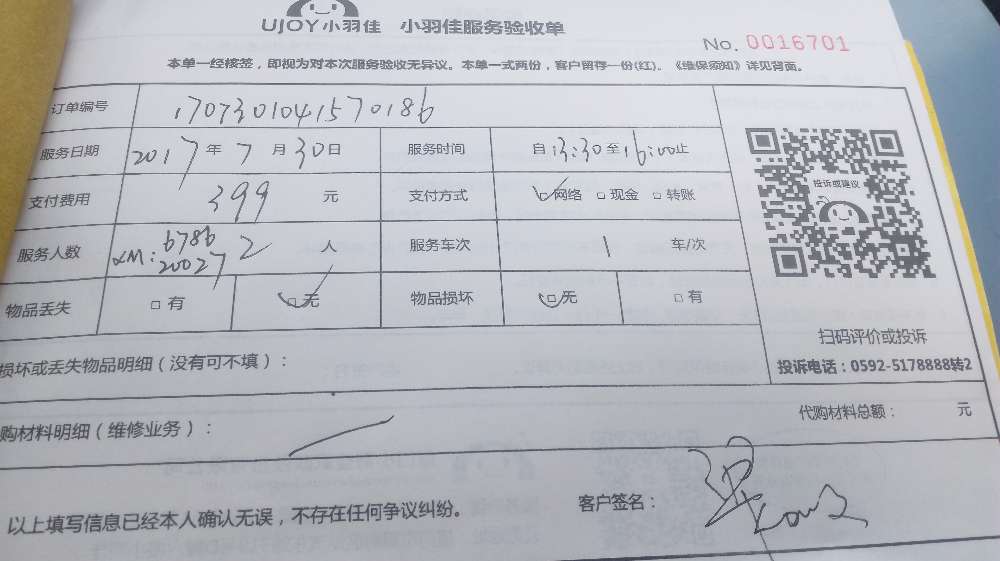 UJOY小羽佳 小羽佳服务验收单
No. 0016701
本单一经核签，即视为对本次服务验收无异议。本单一式两份，客户留存一份(红)。《维保须知》详见背面。
订单编号 170730104157018b
服务日期 2017年7月30日 服务时间 自13:30至16:00止
支付费用 399 元 支付方式 网络 现金 转账
服务人数 XM: 6786 20027 2 人 服务车次 1 车/次
物品丢失 有 无 物品损坏 无 有
投诉或建议
扫码评价或投诉
投诉电话：0592-5178888转2
损坏或丢失物品明细（没有可不填）：
购材料明细（维修业务）：
代购材料总额： 元
以上填写信息已经本人确认无误，不存在任何争议纠纷。
客户签名：